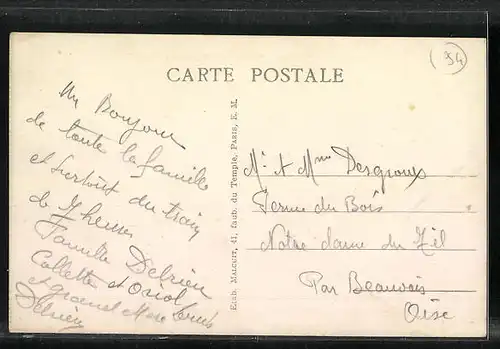 (54)
CARTE POSTALE
Un Bonjour
de toute la famille
et surtout du train
de 7 heures
Famille Delrieu
Collette et
et grand Mere
Delrieu
Etab. MALCUIT, 41, faub. du Temple, PARIS, E. M.
Mr & Mme Desgroux
Ferme du Bois
Notre dame du Thil
Par Beauvais
Oise